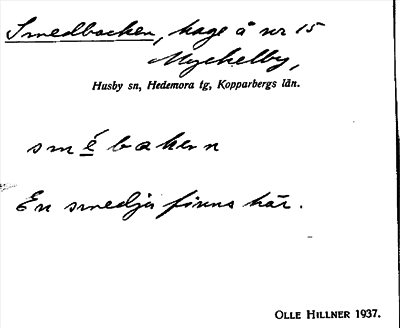 Smedbacken, hage å nr 15
Myckelby,
Husby sn, Hedemora tg, Kopparbergs län.
smèbakən
En smedja finns här.
OLLE HILLNER 1937.